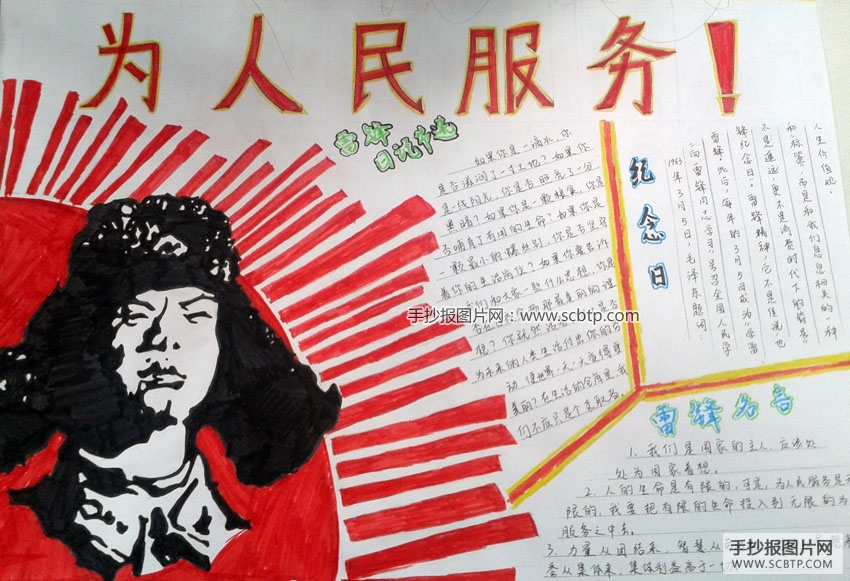 为人民服务!
雷锋
日记节选
如果你是一滴水,你
是否滋润了一寸土地?如果你
是一线阳光,你是否照亮了一分
黑暗?如果你是一颗粮食,你是
否哺育了有用的生命?如果你是
一颗最小的螺丝钉,你是否坚守
着你的生活岗位?如果你要告诉
我们和大家一些什么思想,你是
那最美丽的理
想?你既然活着
为未来的人类生活付出你的劳
动,使世界一天一天变得更
美丽?在生活的仓库里,我
们不应只是个支取者。
手抄报图片网:www.scbtp.com
纪念日
1963年3月5日,毛泽东题词:
“向雷锋同志学习”号召全国人民学
雷锋,此后,每年的3月5日成为“学雷
锋纪念日”。雷锋精神,它不是传说,也
不是遥远,更不是消费时代下的背景
和“标签”,而是和我们息息相关的一种
人生价值观。
雷锋名言
1.我们是国家的主人,应该处
处为国家着想。
2.人的生命是有限的,可是,为人民服务是无
限的,我要把有限的生命投入到无限的为
服务之中去。
3.力量从团结来,智慧从
从集体来,集体利益高于一切
手抄报图片网
WWW.SCBTP.COM